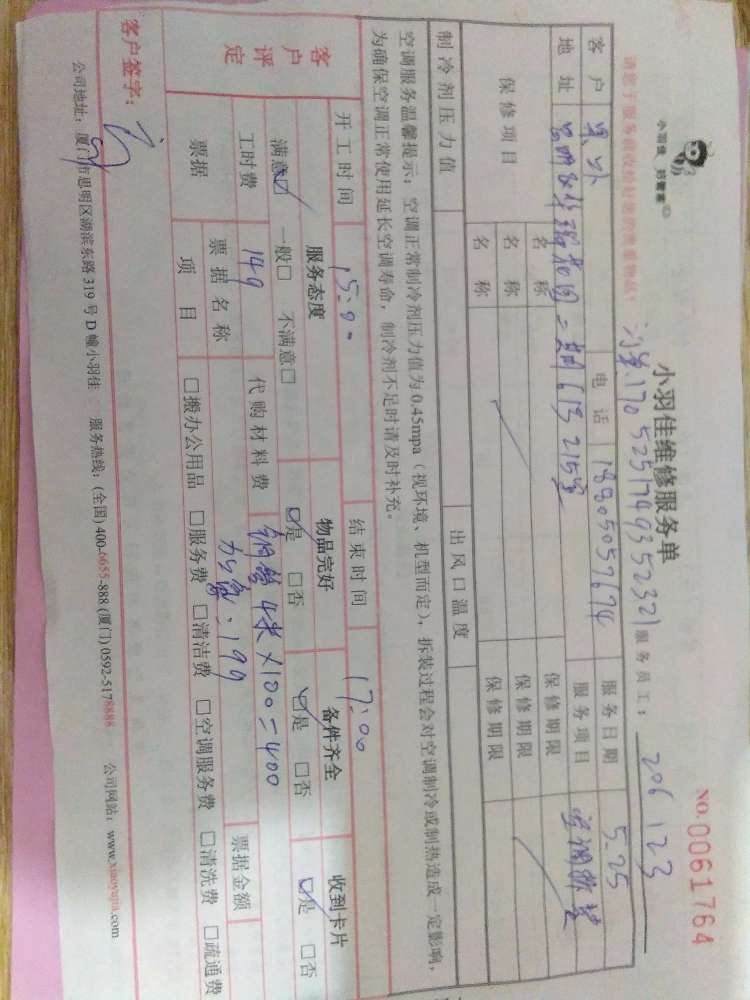 小羽佳 好管家
NO.0061764
小羽佳维修服务单
服务员工： 206 123
1705251749352321
客户 电话 18805057674 服务日期 5.25
地址 二期613 215室 服务项目 空调拆装
保修项目 名称 保修期限
名称 保修期限
名称 保修期限
制冷剂压力值 出风口温度
空调服务温馨提示：空调正常制冷剂压力值为0.45mpa（视环境、机型而定），拆装过程会对空调制冷或制热造成一定影响，
为确保空调正常使用延长空调寿命，制冷剂不足时请及时补充。
开工时间 15:00 结束时间 17:00
客户评定 服务态度 物品完好 备件齐全 收到卡片
满意☑ 一般□ 不满意□ ☑是 □否 ☑是 □否 ☑是 □否
工时费 149 代购材料费 铜管4米×100=400
加氟:199
票据 票据名称 票据金额
项目 □搬办公用品 □服务费 □清洁费 □空调服务费 □清洗费 □疏通费
客户签字：
公司地址：厦门市思明区湖滨东路319号D幢小羽佳 服务热线：(全国)400-6655-888 (厦门)0592-5178888 公司网站：www.xiaoyujia.com